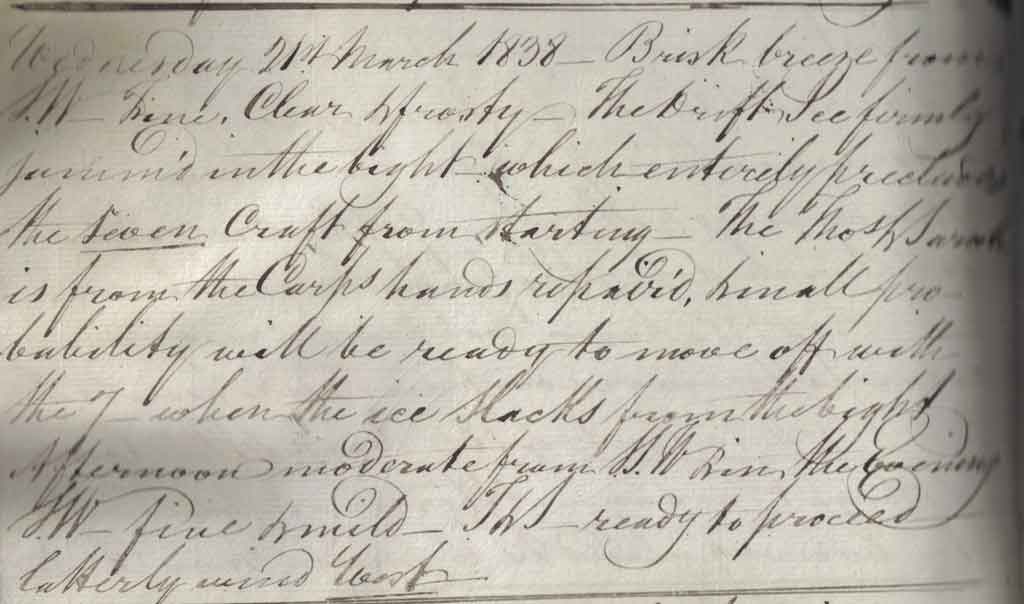 Wednesday 21st March 1838 – Brisk breeze from
S.W – Fine, Clear & frosty – The Drift Ice firmly
jamm'd in the bight which entirely precludes
the Seven Craft from starting – The Thos & Sarah
is from the Carps hands repair'd, & in all pro-
bability will be ready to move off with
the 7 – when the ice slacks from the bight
Afternoon moderate from S.W & in the Evening
S.W – fine & mild – T & S – ready to proceed
latterly wind West